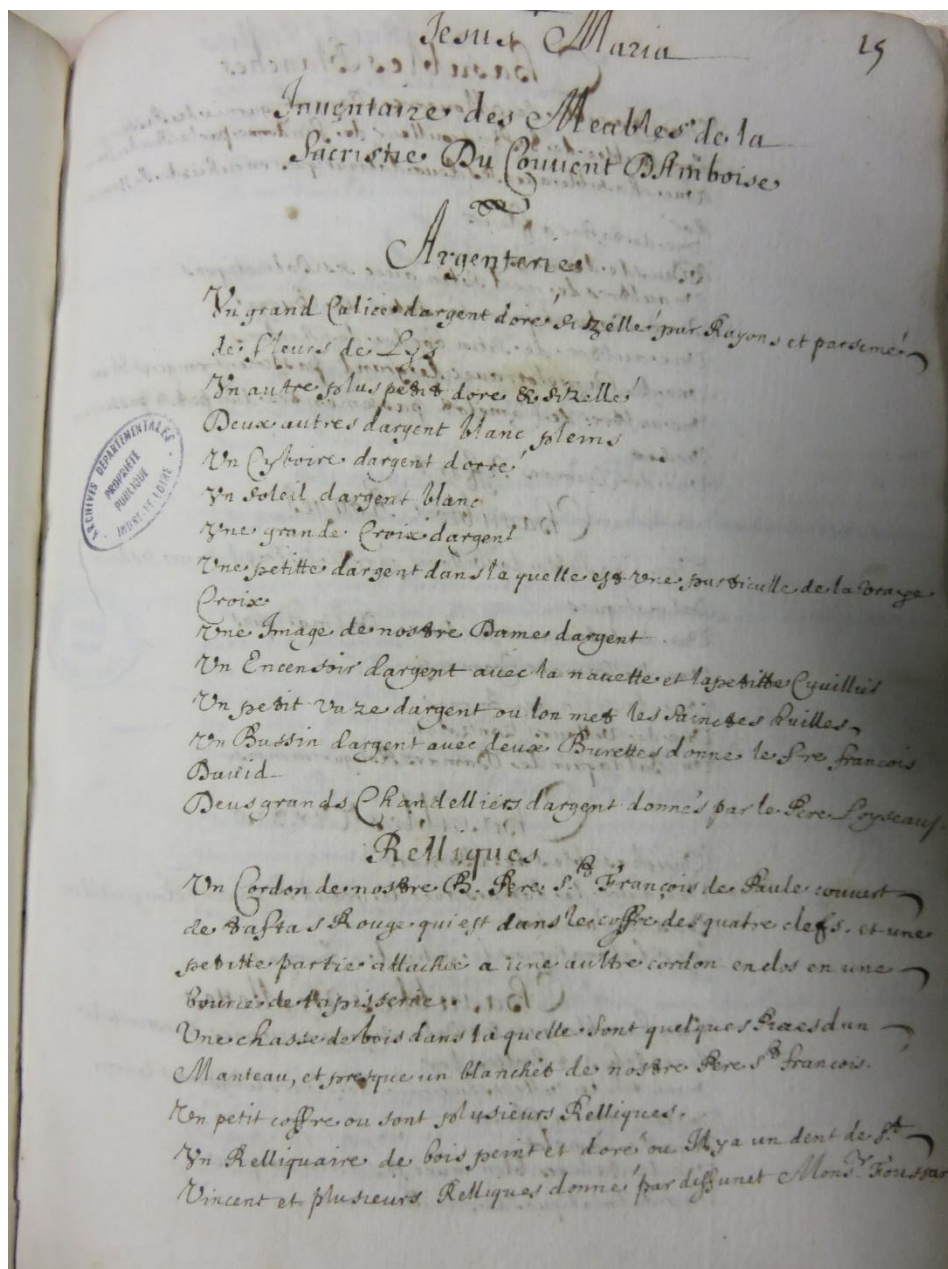 Jesus Maria
15
Inuentaire des Meubles de la
Sacristie Du Couuent DAmboise
Argenteries
Vn grand Calice dargent doré sizellé par Rayons et parsemé
de fleurs de Lys
Vn autre plus petit doré & sizellé
Deux autres dargent blanc pleins
Vn Cyboire dargent dorré
Vn soleil dargent blanc
Vne grande Croix dargent
Vne petitte dargent dans la quelle est vne particulle de la vraye
Croix
Vne Image de nostre Dame dargent
Vn Encensoir dargent auec la nauette et la petitte
Vn petit vaze dargent ou lon met les sainctes huilles
Vn Bassin dargent auec deux Burettes donne le fre françois
Dauid
Deus grands Chandelliers dargent donnés par le Pere Loyseau
Relliques
Vn Cordon de nostre B. Pere St François de Paule couuert
de taftas Rouge qui est dans le coffre des quatre clefs. et une
petitte partie attachée a une aultre cordon enclos en une
bource de tapisserie
Vne chasse de bois dans la quelle sont quelques dun
Manteau, et presque un blanchet de nostre Pere St françois.
Vn petit coffre ou sont plusieurs Relliques.
Vn Relliquaire de bois peint et doré ou Il y a un dent de St
Vincent et plusieurs Relliques donné par deffunct Monsr
ARCHIVES DÉPARTEMENTALES
PROPRIÉTÉ
PUBLIQUE
INDRE-ET-LOIRE